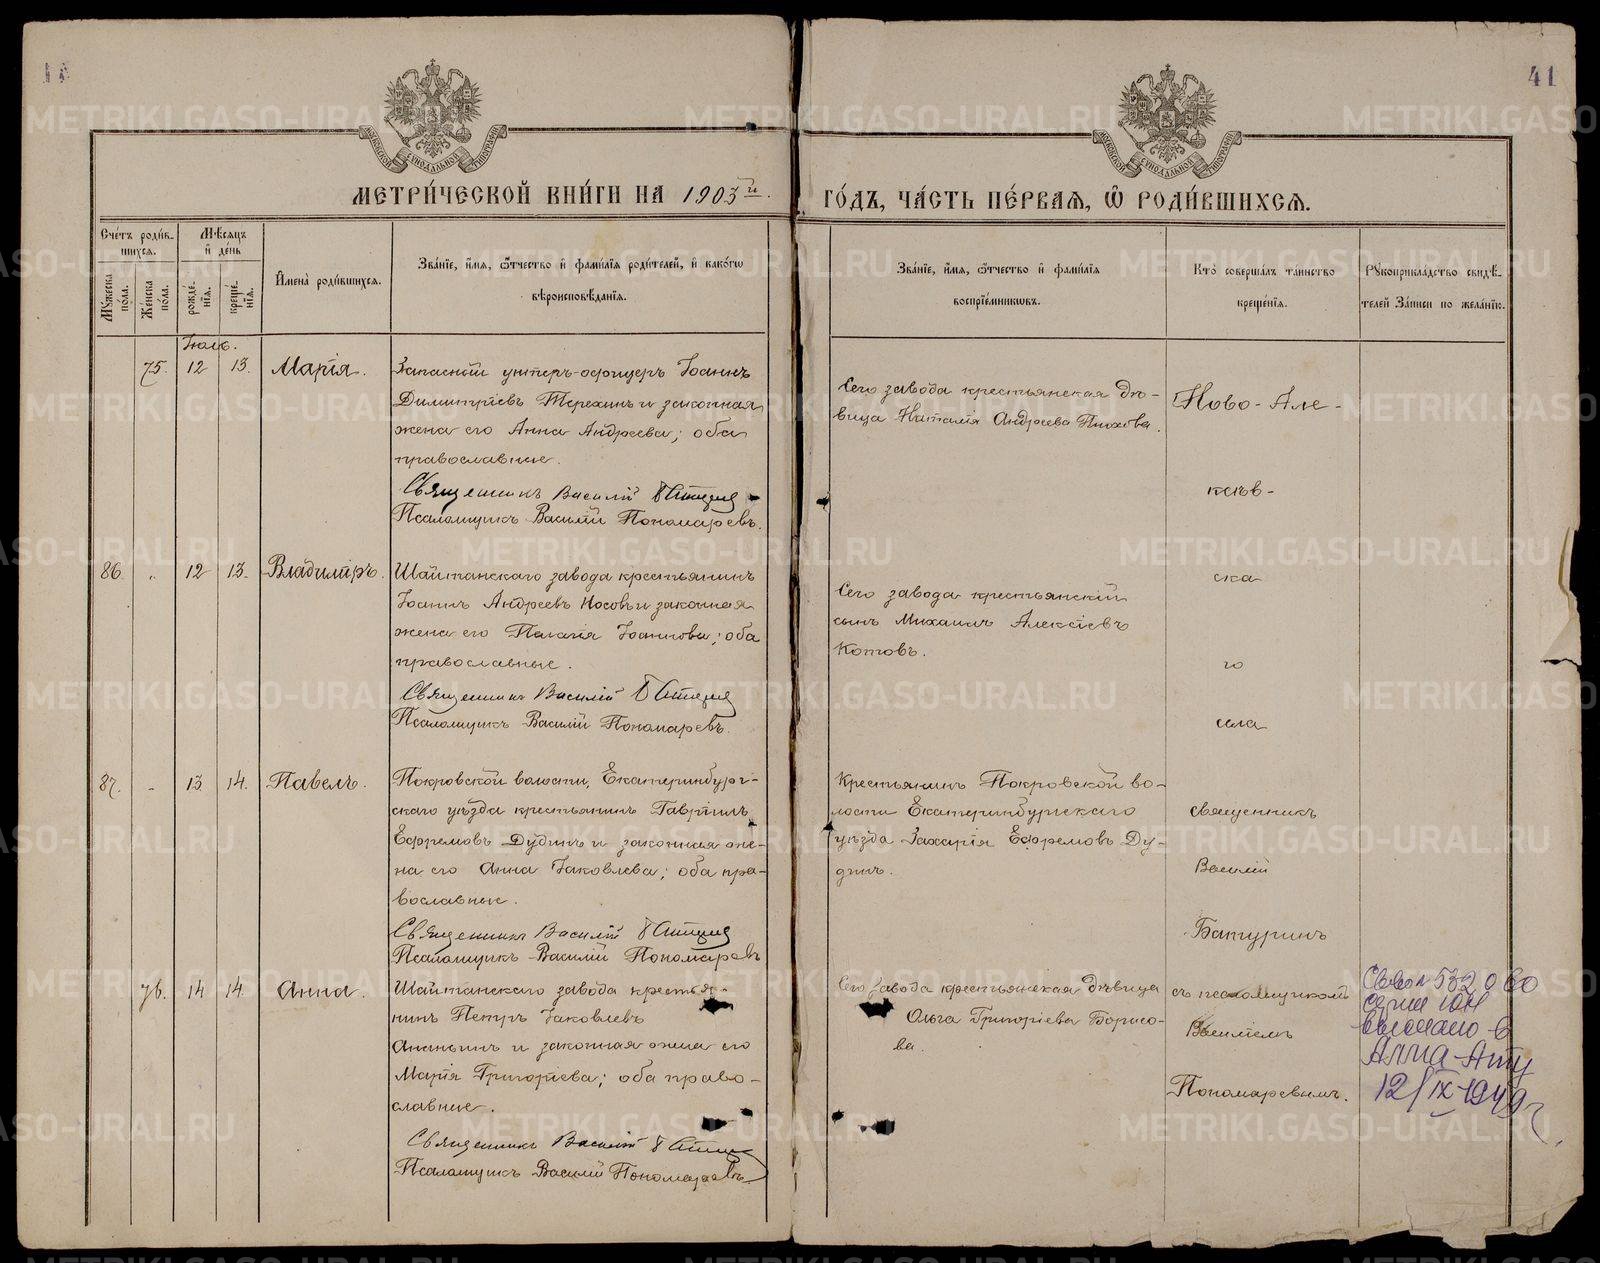 41
МОСКОВСКОЙ СѴНОДАЛЬНОЙ ТИПОГРАФІИ
МОСКОВСКОЙ СѴНОДАЛЬНОЙ ТИПОГРАФІИ
МЕТРИ́ЧЕСКОЙ КНИ́ГИ НА 1903й
ГО́ДЪ, ЧА́СТЬ ПЕ́РВАѦ, Ѽ РОДИ́ВШИХСѦ.
Сче́тъ роди́вшихсѧ.
Мꙋ́жеска по́ла.
Же́нска по́ла.
Мѣ́сѧцъ и де́нь
рожде́нїѧ.
креще́нїѧ.
Имена̀ роди́вшихсѧ.
Зва́нїе, и́мѧ, ѻ́тчество и фами́лїѧ роди́телей, и како́гѡ вѣроисповѣ́данїѧ.
Зва́нїе, и́мѧ, ѻ́тчество и фами́лїѧ воспрїе́мникѡвъ.
Кто̀ соверша́лъ та́инство креще́нїѧ.
Рꙋкоприкла́дство свидѣ́телей за́писи по жела́нїю.
Іюль.
75. 12 13. Марія.
Запасный унтеръ-офицеръ Іоаннъ
Димитріевъ Терехинъ и законная
жена его Анна Андреева; оба
православные.
Священникъ Василій Батурин
Псаломщикъ Василій Пономаревъ.
Сего завода крестьянская дѣ-
вица Наталія Андреева
86 " 12 13. Владиміръ.
Шайтанскаго завода крестьянинъ
Іоаннъ Андреевъ Носовъ и законная
жена его Пелагія Іоаннова; оба
православные.
Священникъ Василій Батурин
Псаломщикъ Василій Пономаревъ.
Сего завода крестьянскій
сынъ Михаилъ Алексіевъ
Котовъ.
87. - 13 14. Павелъ.
Покровской волости, Екатеринбург-
скаго уѣзда крестьянинъ Гавріилъ
Ефремовъ Дудинъ и законная же-
на его Анна Іаковлева; оба пра-
вославные.
Священникъ Василій Батурин
Псаломщикъ Василій Пономаревъ
Крестьянинъ Покровской во-
лости Екатеринбургскаго
уѣзда Захарія Ефремовъ Ду-
динъ.
76. 14 14 Анна.
Шайтанскаго завода крестья-
нинъ Петръ Іаковлевъ
Ананьинъ и законная жена его
Марія Григоріева; оба право-
славные.
Священникъ Василій Батурин
Псаломщикъ Василій Пономаревъ.
Сего завода крестьянская дѣвица
Ольга Григоріева Борисо-
ва.
Ново-Але-
ксѣев-
ска
го
села
священникъ
Василій
Батуринъ
съ псаломщикомъ
Василіемъ
Пономаревымъ.
532060
серии ЮН
выслано в
Алма-Ату
12/IX-1949г.
METRIKI.GASO-URAL.RU